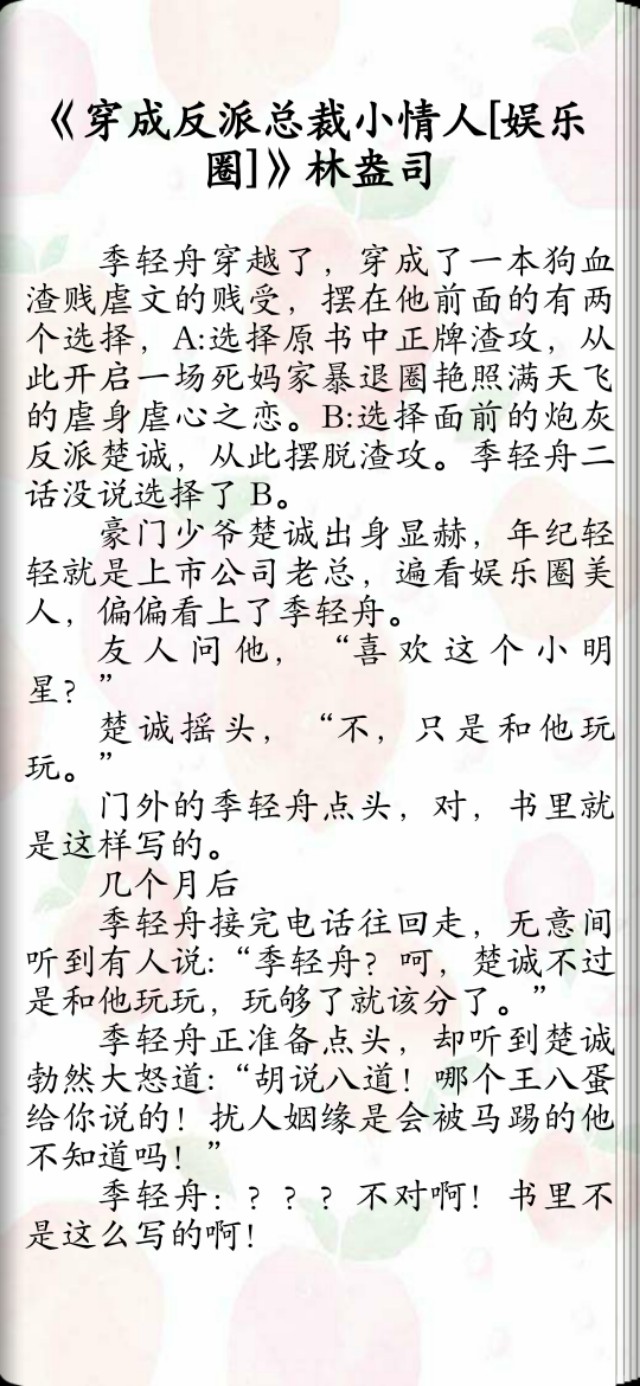 《穿成反派总裁小情人[娱乐
圈]》林盎司
季轻舟穿越了，穿成了一本狗血
渣贱虐文的贱受，摆在他前面的有两
个选择，A:选择原书中正牌渣攻，从
此开启一场死妈家暴退圈艳照满天飞
的虐身虐心之恋。B:选择面前的炮灰
反派楚诚，从此摆脱渣攻。季轻舟二
话没说选择了 B。
豪门少爷楚诚出身显赫，年纪轻
轻就是上市公司老总，遍看娱乐圈美
人，偏偏看上了季轻舟。
友人问他，“喜欢这个小明
星？”
楚诚摇头，“不，只是和他玩
玩。”
门外的季轻舟点头，对，书里就
是这样写的。
几个月后
季轻舟接完电话往回走，无意间
听到有人说:“季轻舟？呵，楚诚不过
是和他玩玩，玩够了就该分了。”
季轻舟正准备点头，却听到楚诚
勃然大怒道:“胡说八道！哪个王八蛋
给你说的！扰人姻缘是会被马踢的他
不知道吗！”
季轻舟：？？？不对啊！书里不
是这么写的啊！